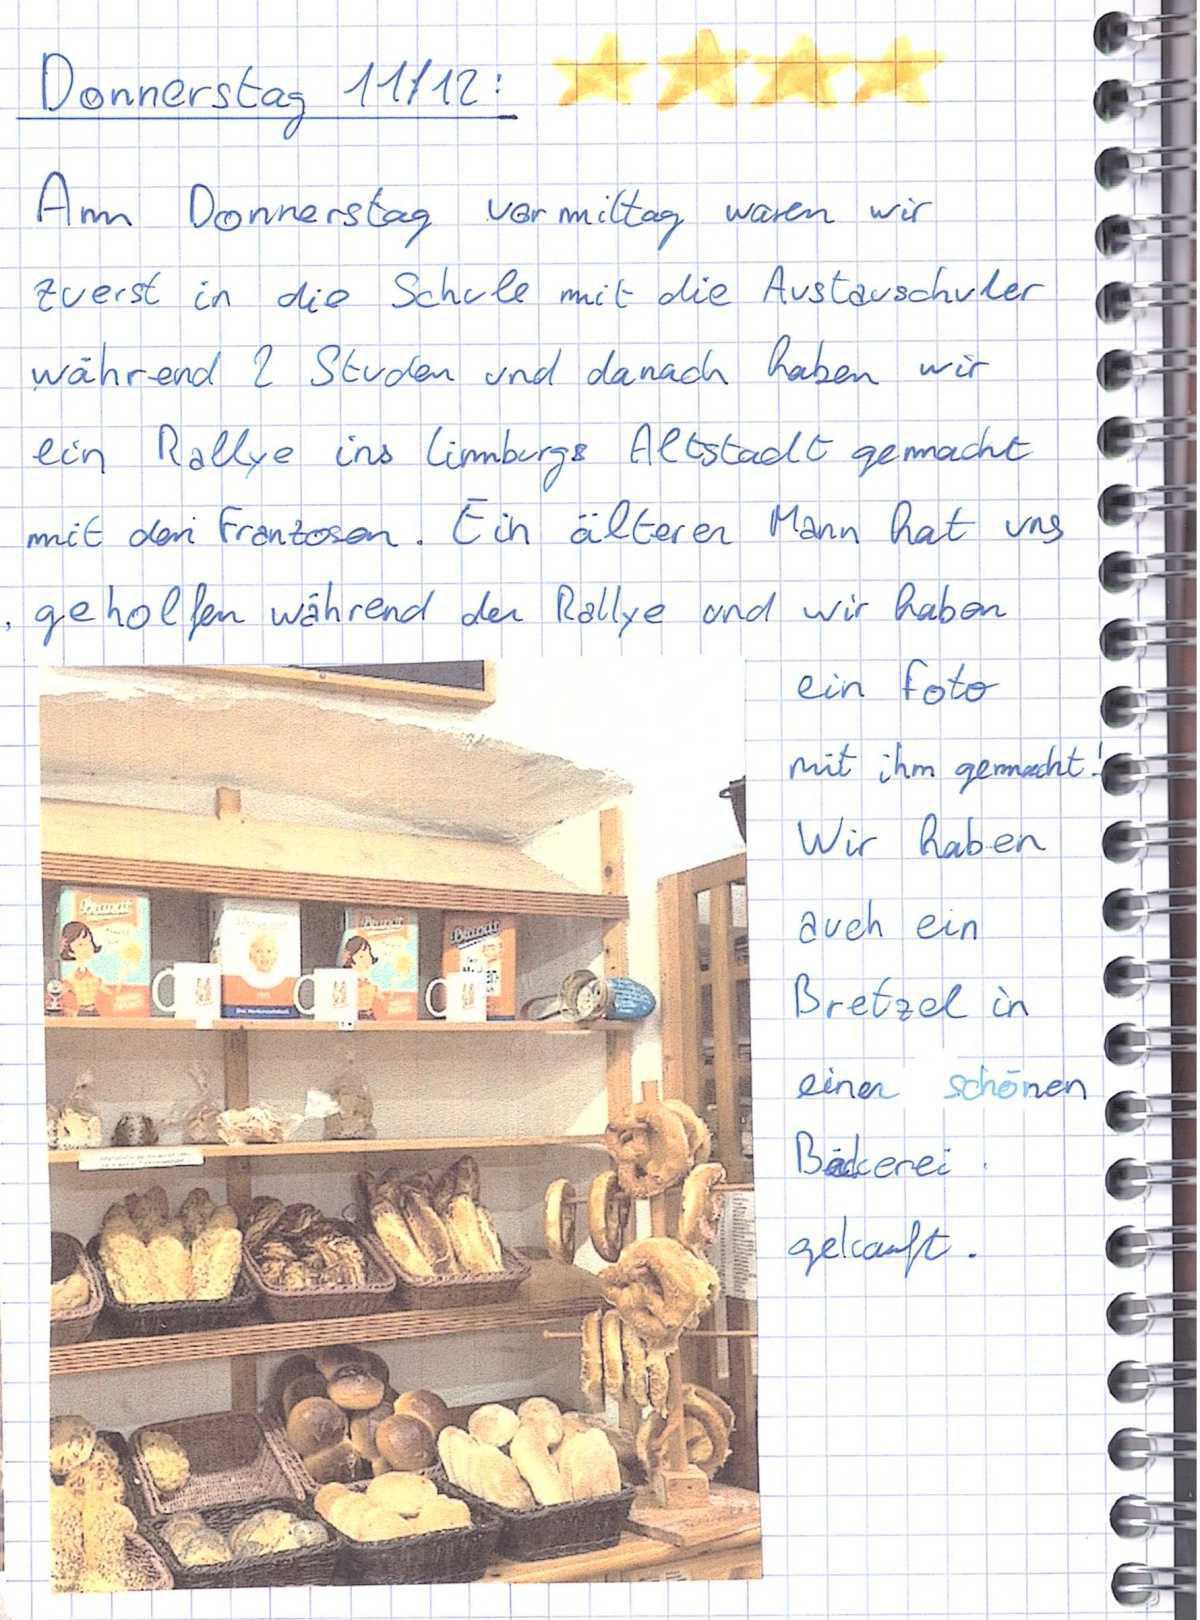 Donnerstag 11/12:
Am Donnerstag vormittag waren wir
zuerst in die Schule mit die Austauschuler
während 2 Studen und danach haben wir
ein Rallye ins Limburgs Altstadt gemacht
mit den Franzosen. Ein älteren Mann hat uns
geholfen während der Rallye und wir haben
ein Foto
mit ihm gemacht!
Wir haben
auch ein
Bretzel in
einer schönen
Bäckerei
gekauft.
Brandt
Brandt
Brandt